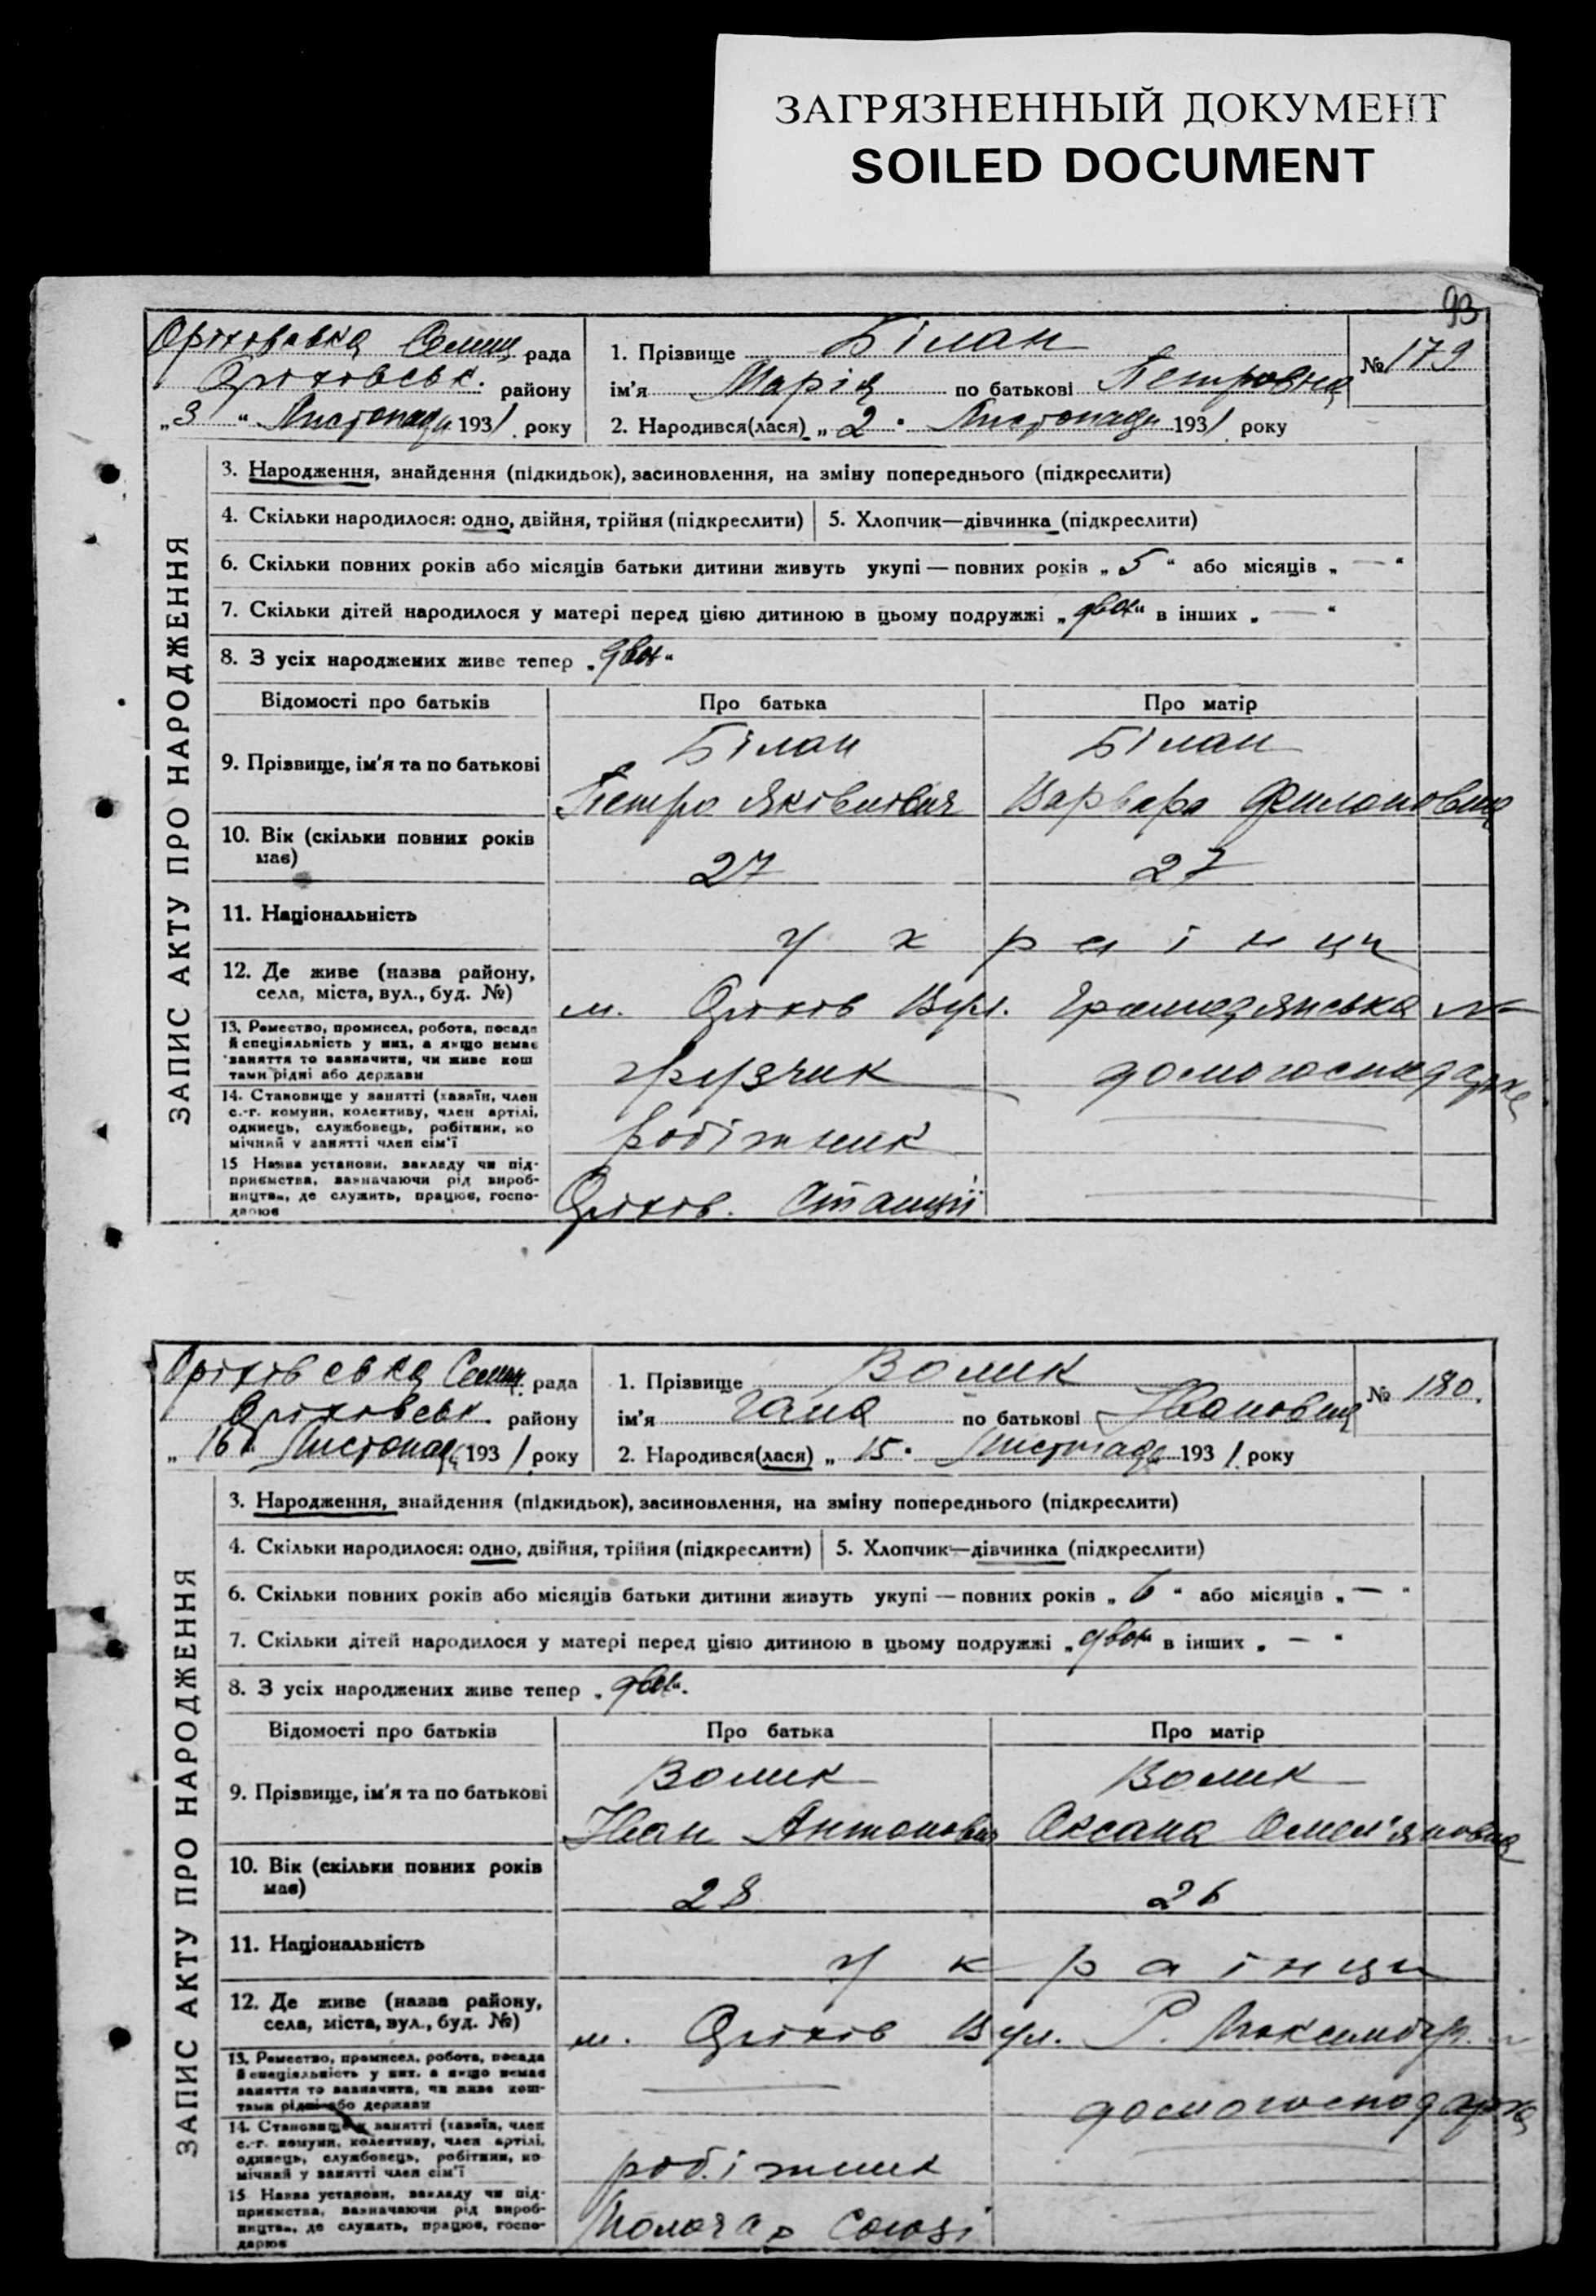 ЗАГРЯЗНЕННЫЙ ДОКУМЕНТ
SOILED DOCUMENT
93
ЗАПИС АКТУ ПРО НАРОДЖЕННЯ
Оріховська Селищ. рада
Оріховськ. району
„3“ Листопада 1931 року
1. Прізвище Білан
№ 179
ім'я Марія по батькові Петровна
2. Народився(лася) „2“ Листопада 1931 року
3. Народження, знайдення (підкидьок), засиновлення, на зміну попереднього (підкреслити)
4. Скільки народилося: одно, двійня, трійня (підкреслити) 5. Хлопчик—дівчинка (підкреслити)
6. Скільки повних років або місяців батьки дитини живуть укупі — повних років „5“ або місяців „—“
7. Скільки дітей народилося у матері перед цією дитиною в цьому подружжі „двох“ в інших „—“
8. З усіх народжених живе тепер „двох“
Відомості про батьків Про батька Про матір
9. Прізвище, ім'я та по батькові Білан Білан
Петро Яківлевич Варвара Филоновна
10. Вік (скільки повних років має) 27 27
11. Національність українци
12. Де живе (назва району, села, міста, вул., буд. №) м. Оріхів Вул. Громадянська №
13. Ремество, промисел, робота, посада й спеціяльність у них, а якщо немає заняття то зазначити, чи живе коштами рідні або держави грузчик домогосподарка
14. Становище у занятті (хазяїн, член с.-г. комуни, колективу, член артілі, одинець, службовець, робітник, помічний у занятті член сім'ї робітник —
15 Назва установи, закладу чи підприємства, зазначаючи рід виробництва, де служить, працює, господарює Оріхів. Станції —
ЗАПИС АКТУ ПРО НАРОДЖЕННЯ
Оріхівська Селищ. рада
Оріховськ. району
„16“ Листопада 1931 року
1. Прізвище Волик
№ 180.
ім'я Гана по батькові Івановна
2. Народився(лася) „15“ Листопада 1931 року
3. Народження, знайдення (підкидьок), засиновлення, на зміну попереднього (підкреслити)
4. Скільки народилося: одно, двійня, трійня (підкреслити) 5. Хлопчик—дівчинка (підкреслити)
6. Скільки повних років або місяців батьки дитини живуть укупі — повних років „6“ або місяців „—“
7. Скільки дітей народилося у матері перед цією дитиною в цьому подружжі „двох“ в інших „—“
8. З усіх народжених живе тепер „двох“.
Відомості про батьків Про батька Про матір
9. Прізвище, ім'я та по батькові Волик Волик
Іван Антонович Оксана Омел'яновна
10. Вік (скільки повних років має) 28 26
11. Національність українци
12. Де живе (назва району, села, міста, вул., буд. №) м. Оріхів Вул. Р.
13. Ремество, промисел, робота, посада й спеціяльність у них, а якщо немає заняття то зазначити, чи живе коштами рідні або держави — домогосподарка
14. Становище у занятті (хазяїн, член с.-г. комуни, колективу, член артілі, одинець, службовець, робітник, помічний у занятті член сім'ї робітник —
15 Назва установи, закладу чи підприємства, зазначаючи рід виробництва, де служить, працює, господарює Союзі —